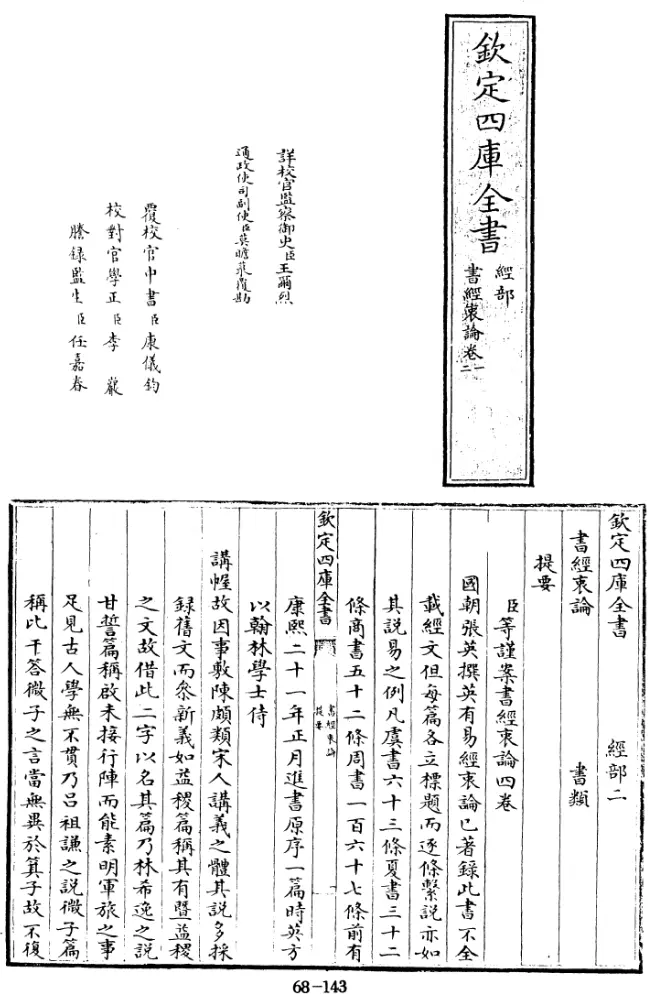 欽定四庫全書
經部
書經衷論卷一
二
詳校官監察御史臣王爾烈
通政使司副使臣莫瞻菉覆勘
覆校官中書臣康儀鈞
校對官學正臣李巖
謄錄監生臣任嘉春
欽定四庫全書 經部二
書經衷論 書類
提要
臣等謹案書經衷論四卷
國朝張英撰英有易經衷論已著錄此書不全
載經文但每篇各立標題而逐條繫說亦如
其說易之例凡虞書六十三條夏書三十二
條商書五十二條周書一百六十七條前有
欽定四庫全書
書經衷論
提要
康熙二十一年正月進書原序一篇時英方
以翰林學士侍
講幄故因事敷陳頗類宋人講義之體其說多採
錄舊文而參新義如益稷篇稱其有暨益稷
之文故借此二字以名其篇乃林希逸之說
甘誓篇稱啟未接行陣而能素明軍旅之事
足見古人學無不貫乃呂祖謙之說微子篇
稱比干答微子之言當無異於箕子故不復
68-143